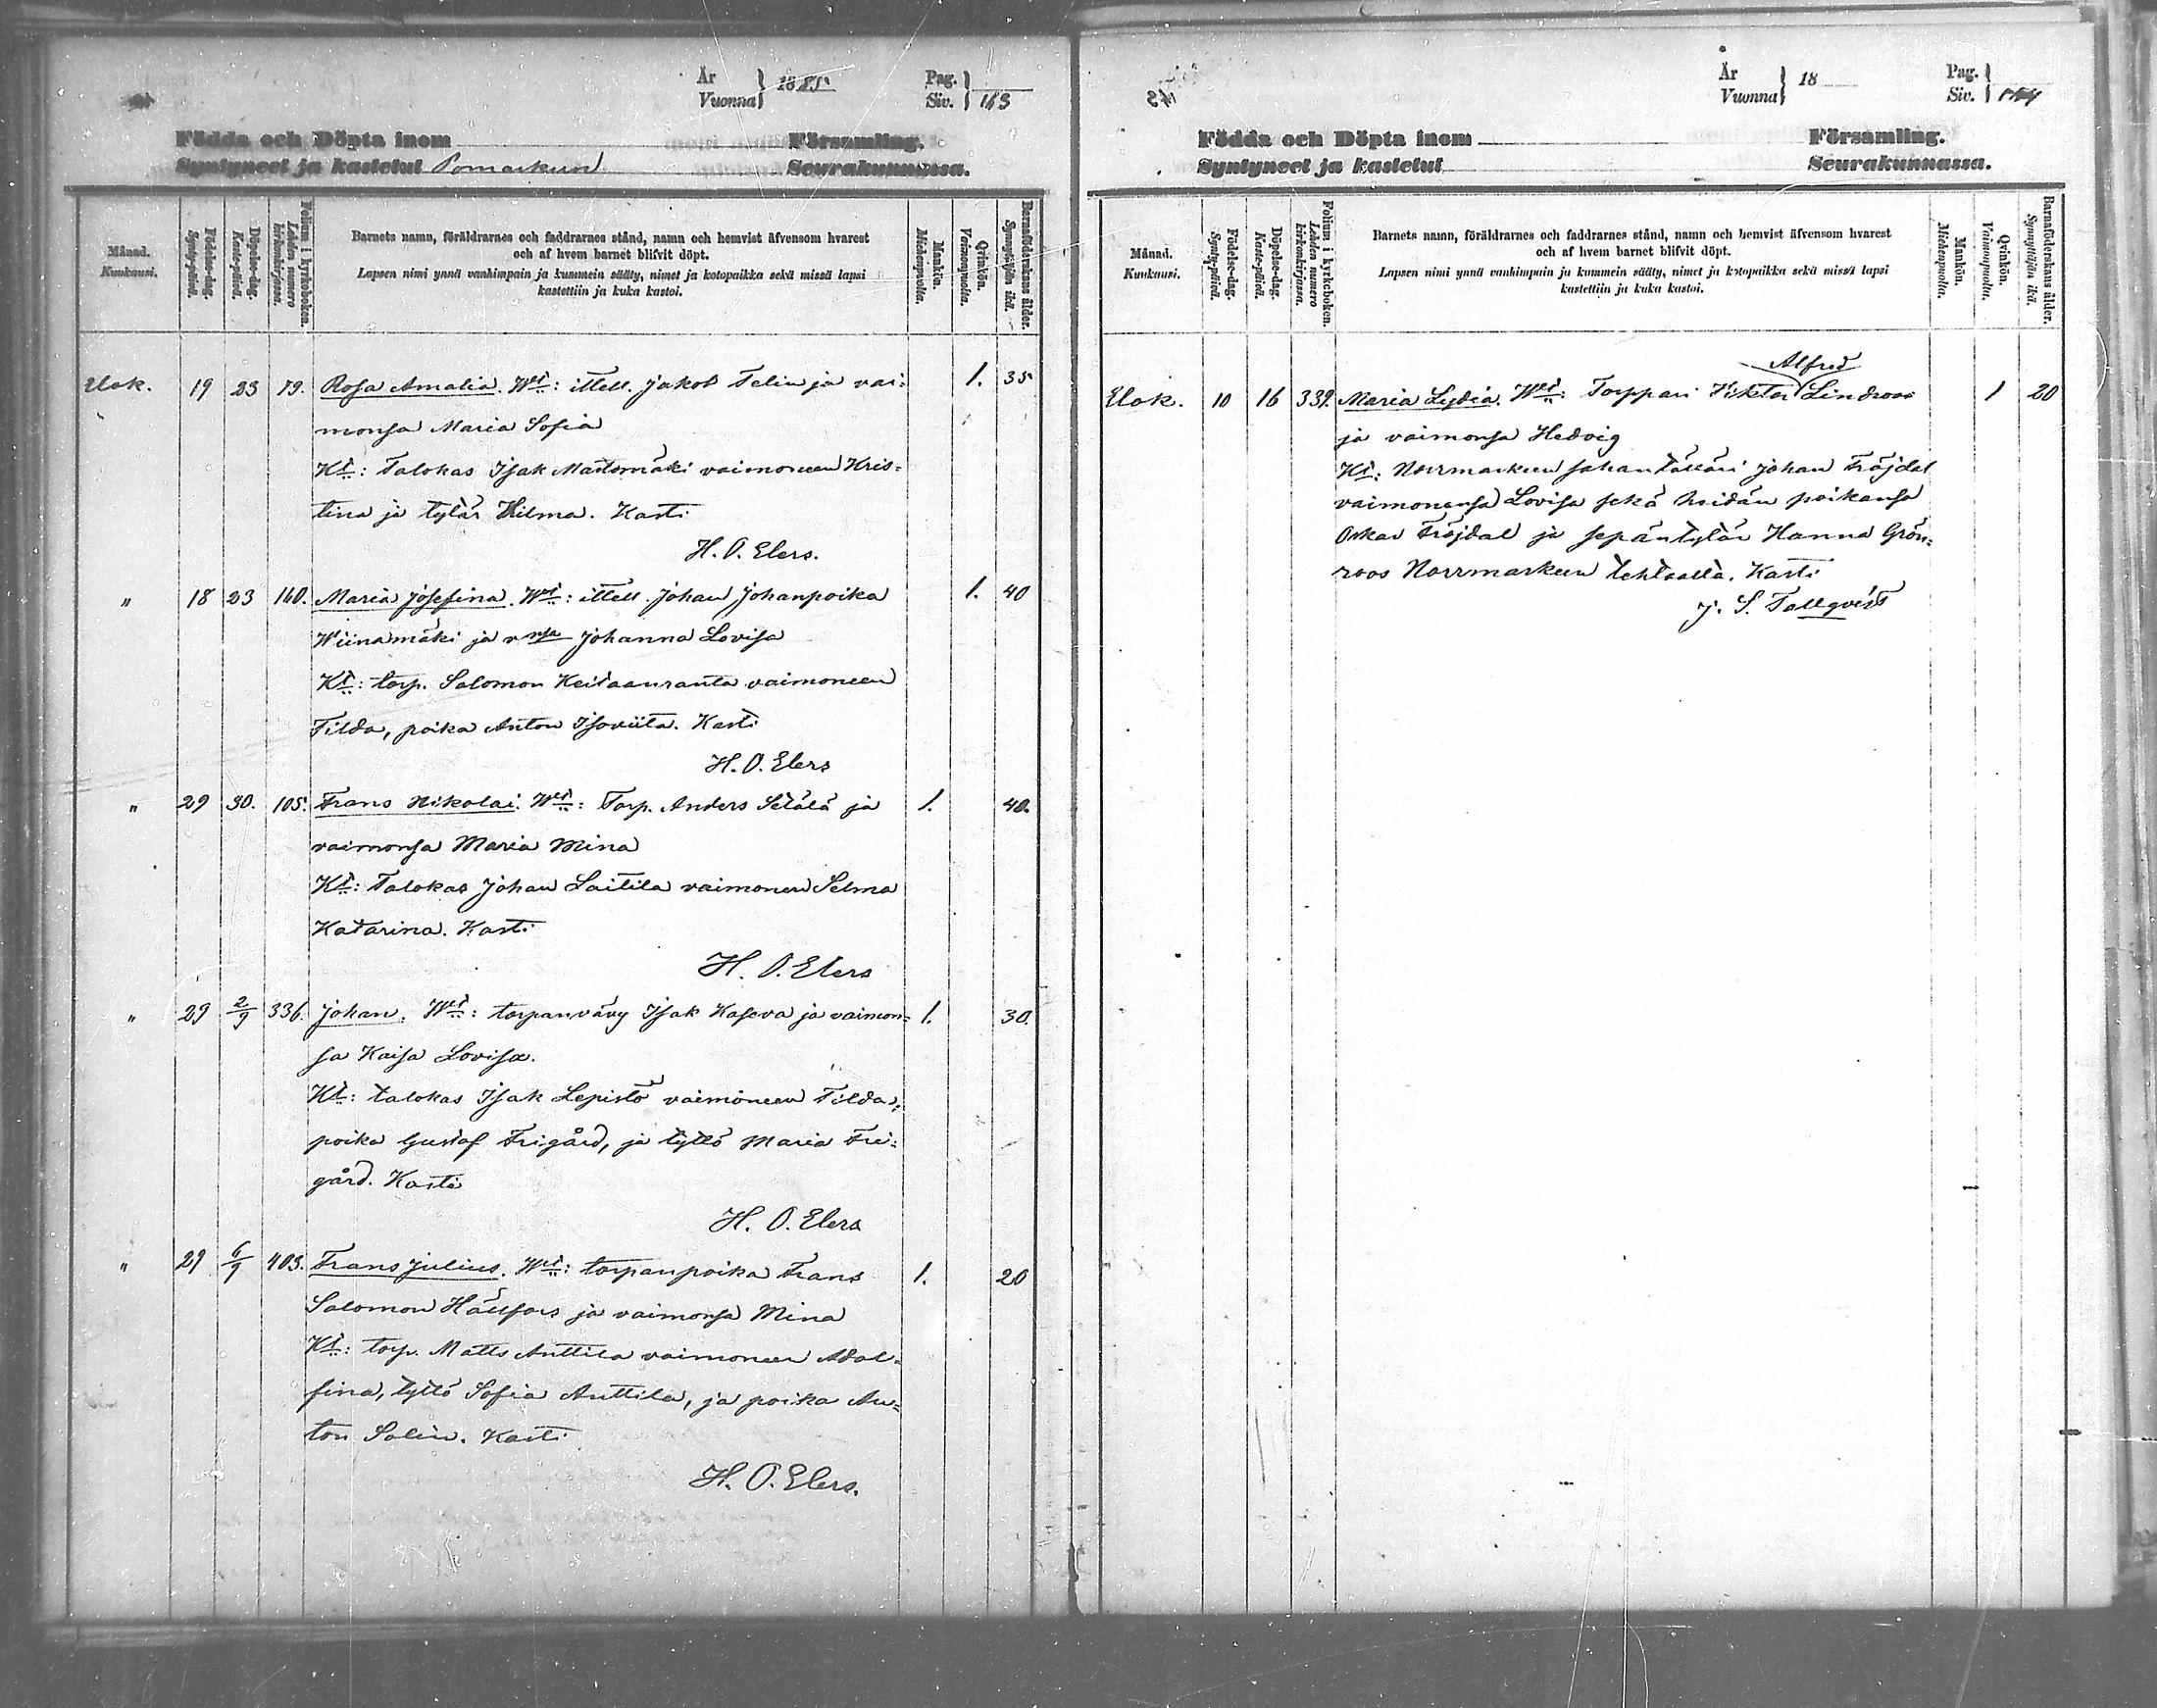 År
Vuonna } 1885
Pag.
Siv. } 163
Födda och Döpta inom Församling.
Syntyneet ja kastetut Pomarkun Seurakunnassa.
Månad.
Kuukausi.
Födelse-dag.
Synty-päivä.
Döpelse-dag.
Kaste-päivä.
Folium i kyrkoboken.
Lehden numero kirkonkirjassa.
Barnets namn, föräldrarnes och faddrarnes stånd, namn och hemvist äfvensom hvarest
och af hvem barnet blifvit döpt.
Lapsen nimi ynnä vanhimpain ja kummein sääty, nimet ja kotopaikka sekä missä lapsi
kastettiin ja kuka kastoi.
Mankön.
Miehenpuolta.
Qvinkön.
Vaimonpuolta.
Barnaföderskans ålder.
Synnyttäjän ikä.
Elok. 19 23 79. Rosa Amalia. Wt: ittell. Jakob Felin ja vai= 1. 35
monsa Maria Sofia
Kt: Talokas Isak Mastomäki vaimoneen Kris=
tina ja tytär Hilma. Kasti
H. O. Elers.
" 18 23 160. Maria Josefina. Wt: ittell. Johan Johanpoika 1. 40
Wiinamäki ja vnsa Johanna Lovisa
Kt: torp. Salomon Keitaanranta vaimoneen
Tilda, poika Anton Isoviita. Kasti
H. O. Elers
" 29 30. 105. Frans Nikolai. Wt: Torp. Anders Setälä ja 1. 40.
vaimonsa Maria Mina
Kt: Talokas Johan Laitila vaimoneen Selma
Katarina. Kasti
H. O. Elers
" 29 2/9 336. Johan. Wt: torpanvävy Isak Kaseva ja vaimon= 1. 30.
sa Kaisa Lovisa.
Kt: talokas Isak Lepistö vaimoneen Tilda,
poika Gustaf Frigård, ja tyttö Maria Fri=
gård. Kasti
H. O. Elers
" 29 6/9 403. Frans Julius. Wt: torpanpoika Frans 1. 20
Salomon Hällfors ja vaimonsa Mina
Kt: torp. Matts Anttila vaimoneen Adol=
fina, tyttö Sofia Anttila, ja poika An=
ton Salin. Kasti
H. O. Elers.
År
Vuonna } 18
Pag.
Siv. } 164
Födda och Döpta inom Församling.
Syntyneet ja kastetut Seurakunnassa.
Månad.
Kuukausi.
Födelse-dag.
Synty-päivä.
Döpelse-dag.
Kaste-päivä.
Folium i kyrkoboken.
Lehden numero kirkonkirjassa.
Barnets namn, föräldrarnes och faddrarnes stånd, namn och hemvist äfvensom hvarest
och af hvem barnet blifvit döpt.
Lapsen nimi ynnä vanhimpain ja kummein sääty, nimet ja kotopaikka sekä missä lapsi
kastettiin ja kuka kastoi.
Mankön.
Miehenpuolta.
Qvinkön.
Vaimonpuolta.
Barnaföderskans ålder.
Synnyttäjän ikä.
Alfred
Elok. 10 16 339. Maria Lydia. Wt: Torppari Viktor Lindroos 1 20
ja vaimonsa Hedvig
Kt: Norrmarkun sahantällari Johan Fröjdal
vaimonensa Lovisa sekä heidän poikansa
Oskar Fröjdal ja sepäntytär Hanna Grön=
roos Norrmarkun tehtaalta. Kasti
J. S. Tallqvist